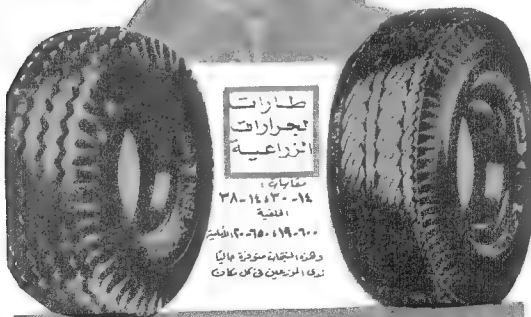 طارات
لجرارات
الزراعية
مقاسات :
١٤-٣٠، ١٤-٣٨
الخلفية
٦٠٠-١٩، ٦٥٠-٢٠ الأمامية
وهذه المنتجات متوفرة حاليًا
لدى الموزعين فى كل مكان